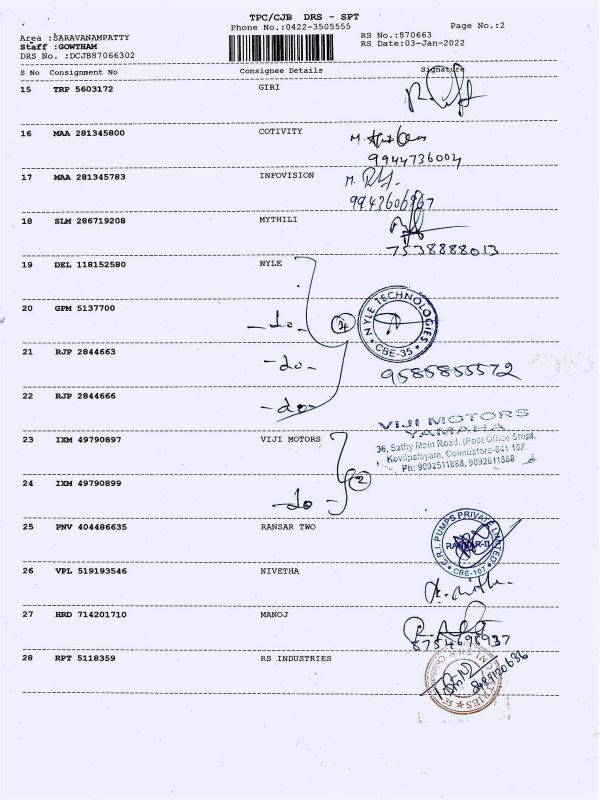 TPC/CJB DRS - SPT
Phone No.:0422-3505555
Page No.:2
Area :SARAVANAMPATTY
RS No.:870663
Staff :GOWTHAM
RS Date:03-Jan-2022
DRS No. :DCJB87066302
S No Consignment No Consignee Details Signature
15 TRP 5603172 GIRI
16 MAA 281345800 COTIVITY
9944736004
17 MAA 281345783 INFOVISION
18 SLM 286719208 MYTHILI
7538888013
19 DEL 118152580 NYLE
20 GPM 5137700 -do-
NYLE TECHNOLOGIES
* CBE-35 *
21 RJP 2844663 -do-
9585855572
22 RJP 2844666 -do-
23 IXM 49790897 VIJI MOTORS
VIJI MOTORS
YAMAHA
36, Sathy Main Road, (Post Office Stop),
Kovilpalayam, Coimbatore-641 107
Ph: 9092511888, 9092611888
24 IXM 49790899 -do- 2
25 PNV 404486635 RANSAR TWO
C.R.I. PUMPS PRIVATE LIMITED
RANSAR-II
* CBE-107 *
26 VPL 519193546 NIVETHA
27 HRD 714201710 MANOJ
8754695937
28 RPT 5118359 RS INDUSTRIES